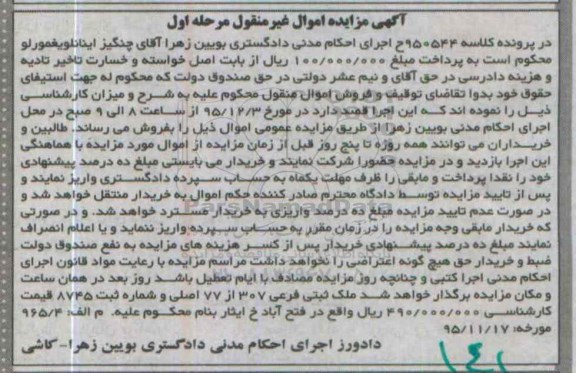 آگهی مزایده اموال غیرمنقول مرحله اول
در پرونده کلاسه ۹۵۰۵۴۴ج اجرای احکام مدنی دادگستری بویین زهرا آقای چنگیز اینانلویغمورلو
محکوم است به پرداخت مبلغ ۱۰۰/۰۰۰/۰۰۰ ریال از بابت اصل خواسته و خسارت تاخیر تادیه
و هزینه دادرسی در حق آقای و نیم عشر دولتی در حق صندوق دولت که محکوم له جهت استیفای
حقوق خود بدوا تقاضای توقیف و فروش اموال منقول محکوم علیه به شرح و میزان کارشناسی
ذیل را نموده اند که این اجرا قصد دارد در مورخ ۹۵/۱۲/۳ از ساعت ۸ الی ۹ صبح در محل
اجرای احکام مدنی بویین زهرا از طریق مزایده عمومی اموال ذیل را بفروش می رساند. طالبین و
خریداران می توانند همه روزه تا پنج روز قبل از زمان مزایده از اموال مورد مزایده با هماهنگی
این اجرا بازدید و در مزایده حضورا شرکت نمایند و خریدار می بایستی مبلغ ده درصد پیشنهادی
خود را نقدا پرداخت و مابقی را ظرف مهلت یکماه به حساب سپرده دادگستری واریز نمایند و
پس از تایید مزایده توسط دادگاه محترم صادر کننده حکم اموال به خریدار منتقل خواهد شد و
در صورت عدم تایید مزایده مبلغ ده درصد واریزی به خریدار مسترد خواهد شد. و در صورتی
که خریدار مابقی وجه مزایده را در زمان مقرر به حساب سپرده واریز ننماید و یا اعلام انصراف
نمایند مبلغ ده درصد پیشنهادی خریدار پس از کسر هزینه های مزایده به نفع صندوق دولت
ضبط و خریدار حق هیچ گونه اعتراضی را نخواهد داشت. مراسم مزایده با رعایت مواد قانون اجرای
احکام مدنی اجرا کتبی و چنانچه روز مزایده مصادف با ایام تعطیل باشد روز بعد در همان ساعت
و مکان مزایده برگذار خواهد شد ملک ثبتی فرعی ۳۰۷ از ۷۷ اصلی و شماره ثبت ۸۷۴۵ قیمت
کارشناسی ۴۹۰/۰۰۰/۰۰۰ ریال واقع در فتح آباد خ ایثار بنام محکوم علیه. م الف: ۹۶۵/۴
مورخه: ۹۵/۱۱/۱۷
دادورز اجرای احکام مدنی دادگستری بویین زهرا-کاشی
ParsNamadData